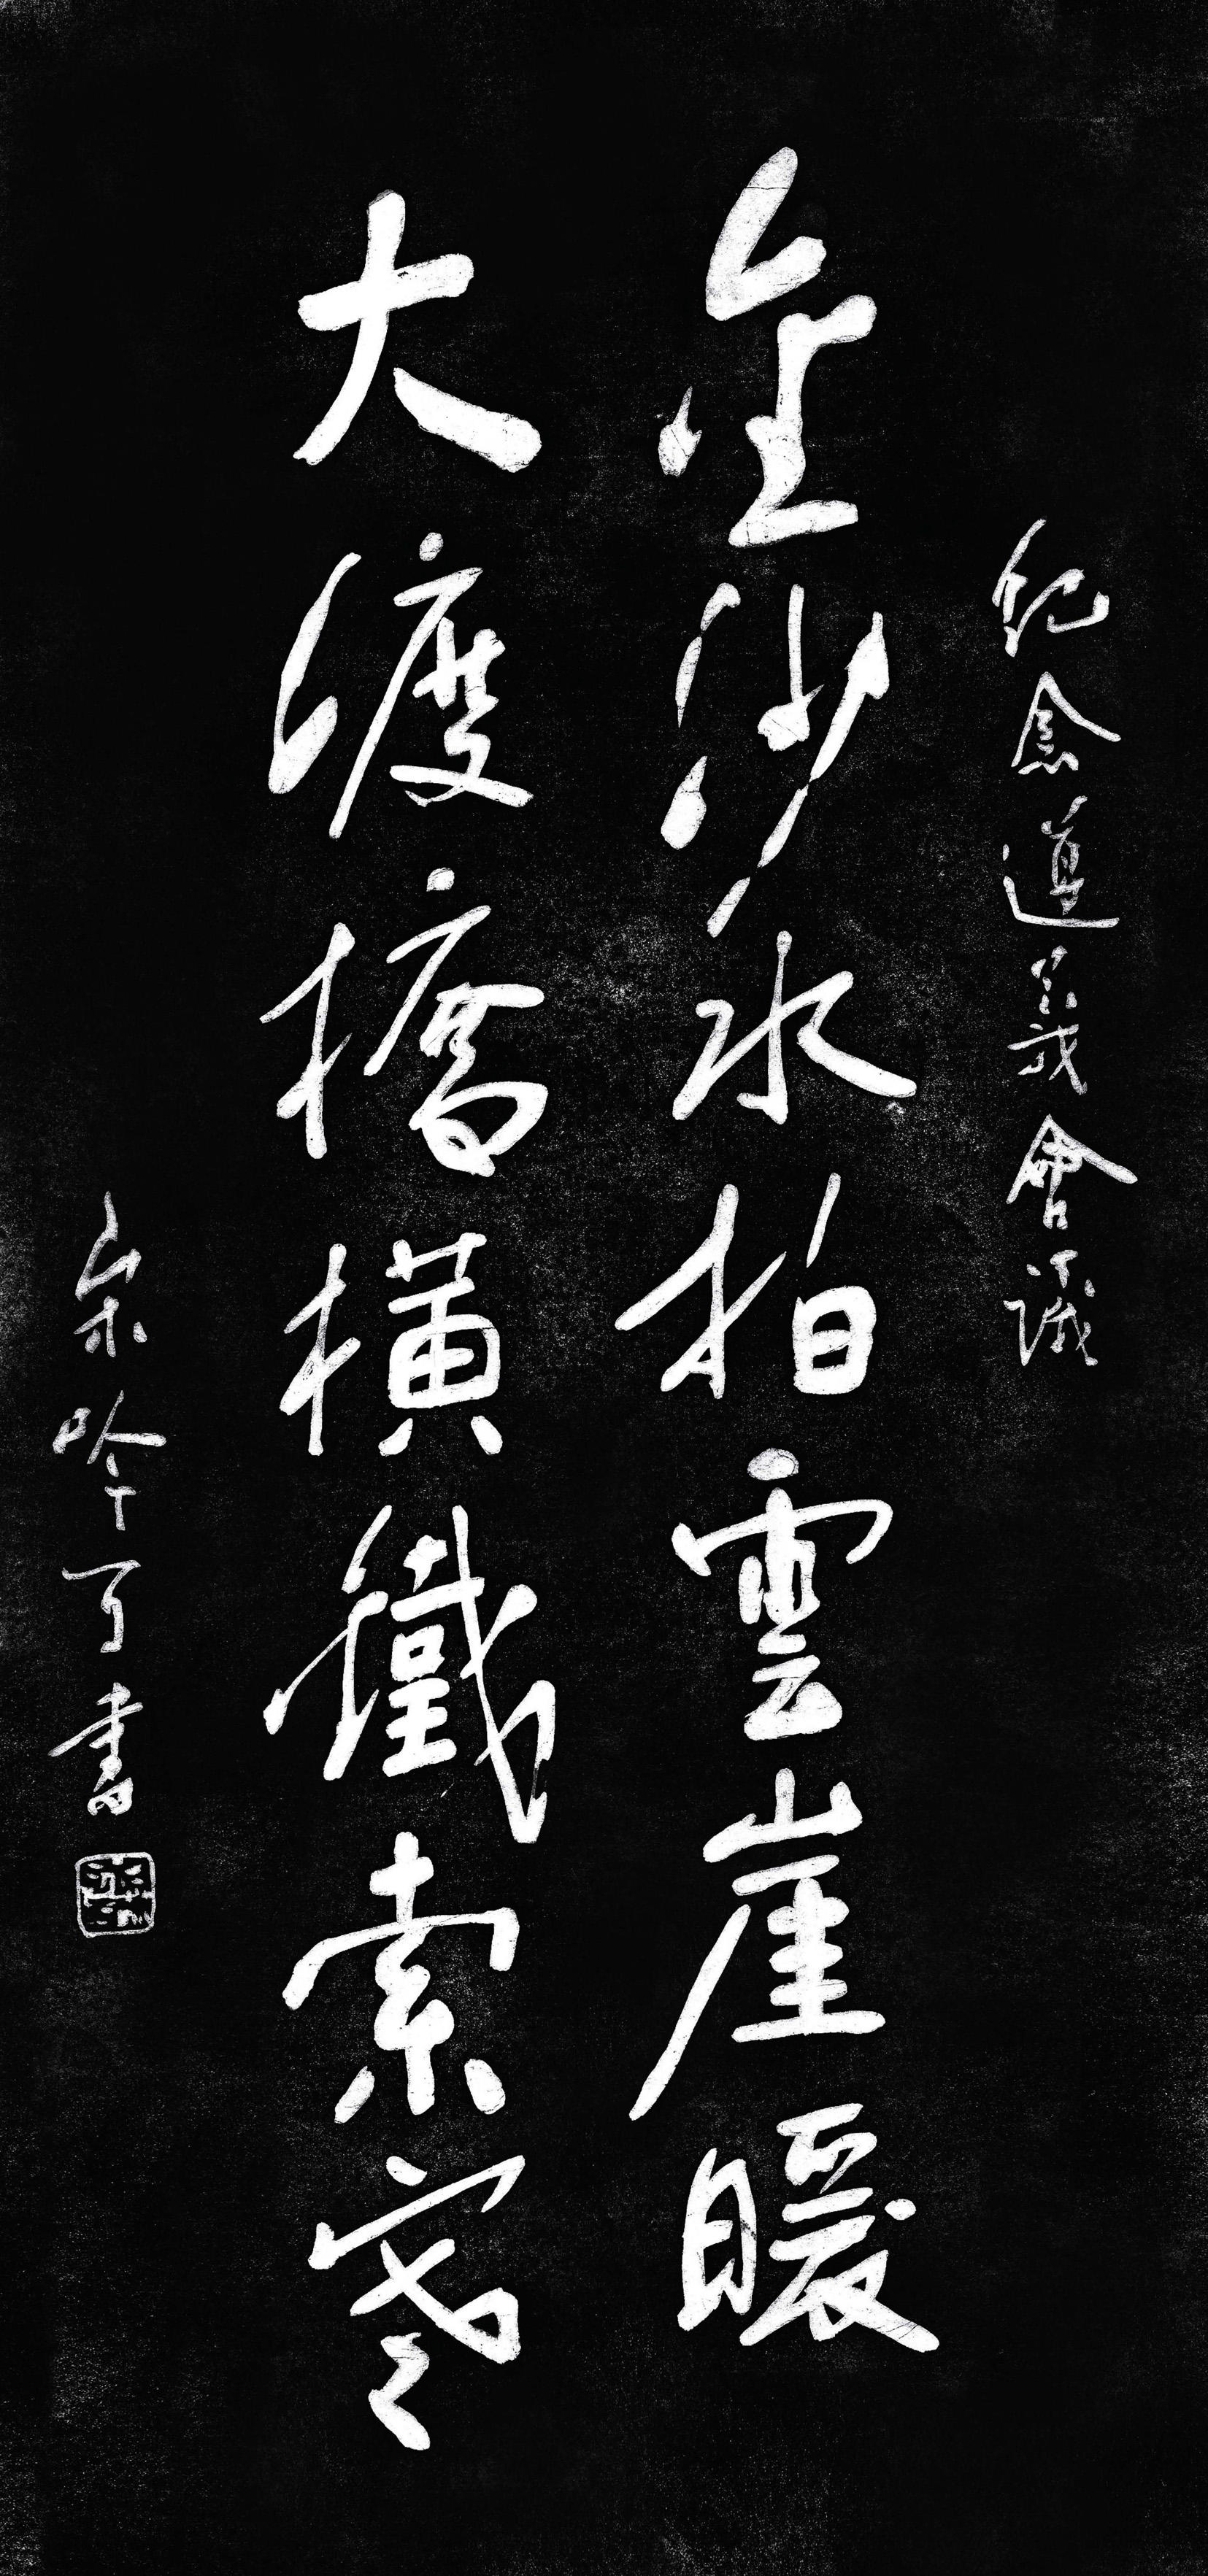 紀念遵義會議
金沙水拍雲崖暖
大渡橋橫鐵索寒
吟了書